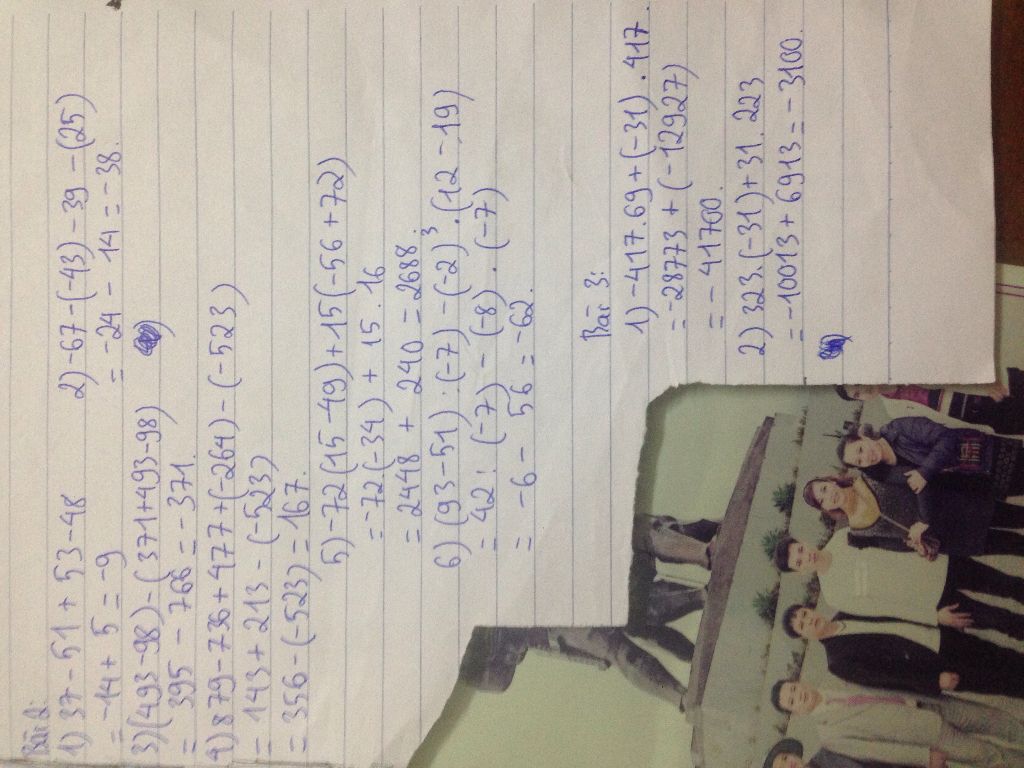 Bài 2:
1) 37 - 51 + 53 - 48
= -14 + 5 = -9
2) -67 - (-43) - 39 - (25)
= -24 - 14 = -38.
3) (493-98) - (371+493-98)
= 395 - 766 = -371.
4) 879 - 736 + 477 + (-264) - (-523)
= 143 + 213 - (-523)
= 356 - (-523) = 167.
5) -72(15-49) + 15(-56+72)
= -72(-34) + 15.16
= 2448 + 240 = 2688.
6) (93-51).(-7) - (-2)³.(12-19)
= 42 : (-7) - (-8).(-7)
= -6 - 56 = -62.
Bài 3:
1) -417.69 + (-31).417.
= -28773 + (-12927)
= -41700.
2) 323.(-31) + 31.223
= -10013 + 6913 = -3100.